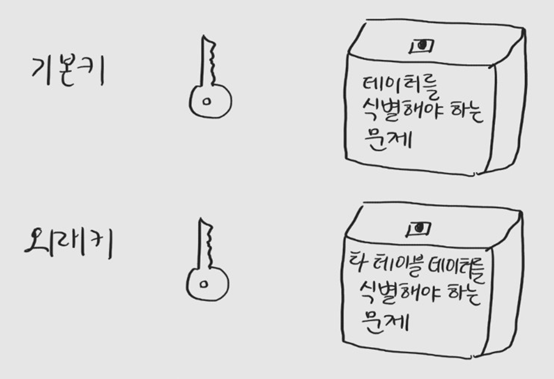 기본키
테이터를
식별해야 하는
문제
외래키
타 테이블 데이터를
식별해야 하는
문제